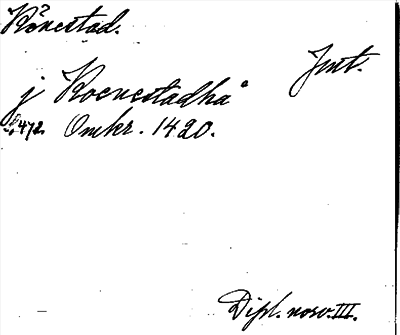 Könestad.
Jnt.
j Koenestadha
s. 472. Omkr. 1420.
Dipl. norv. III.